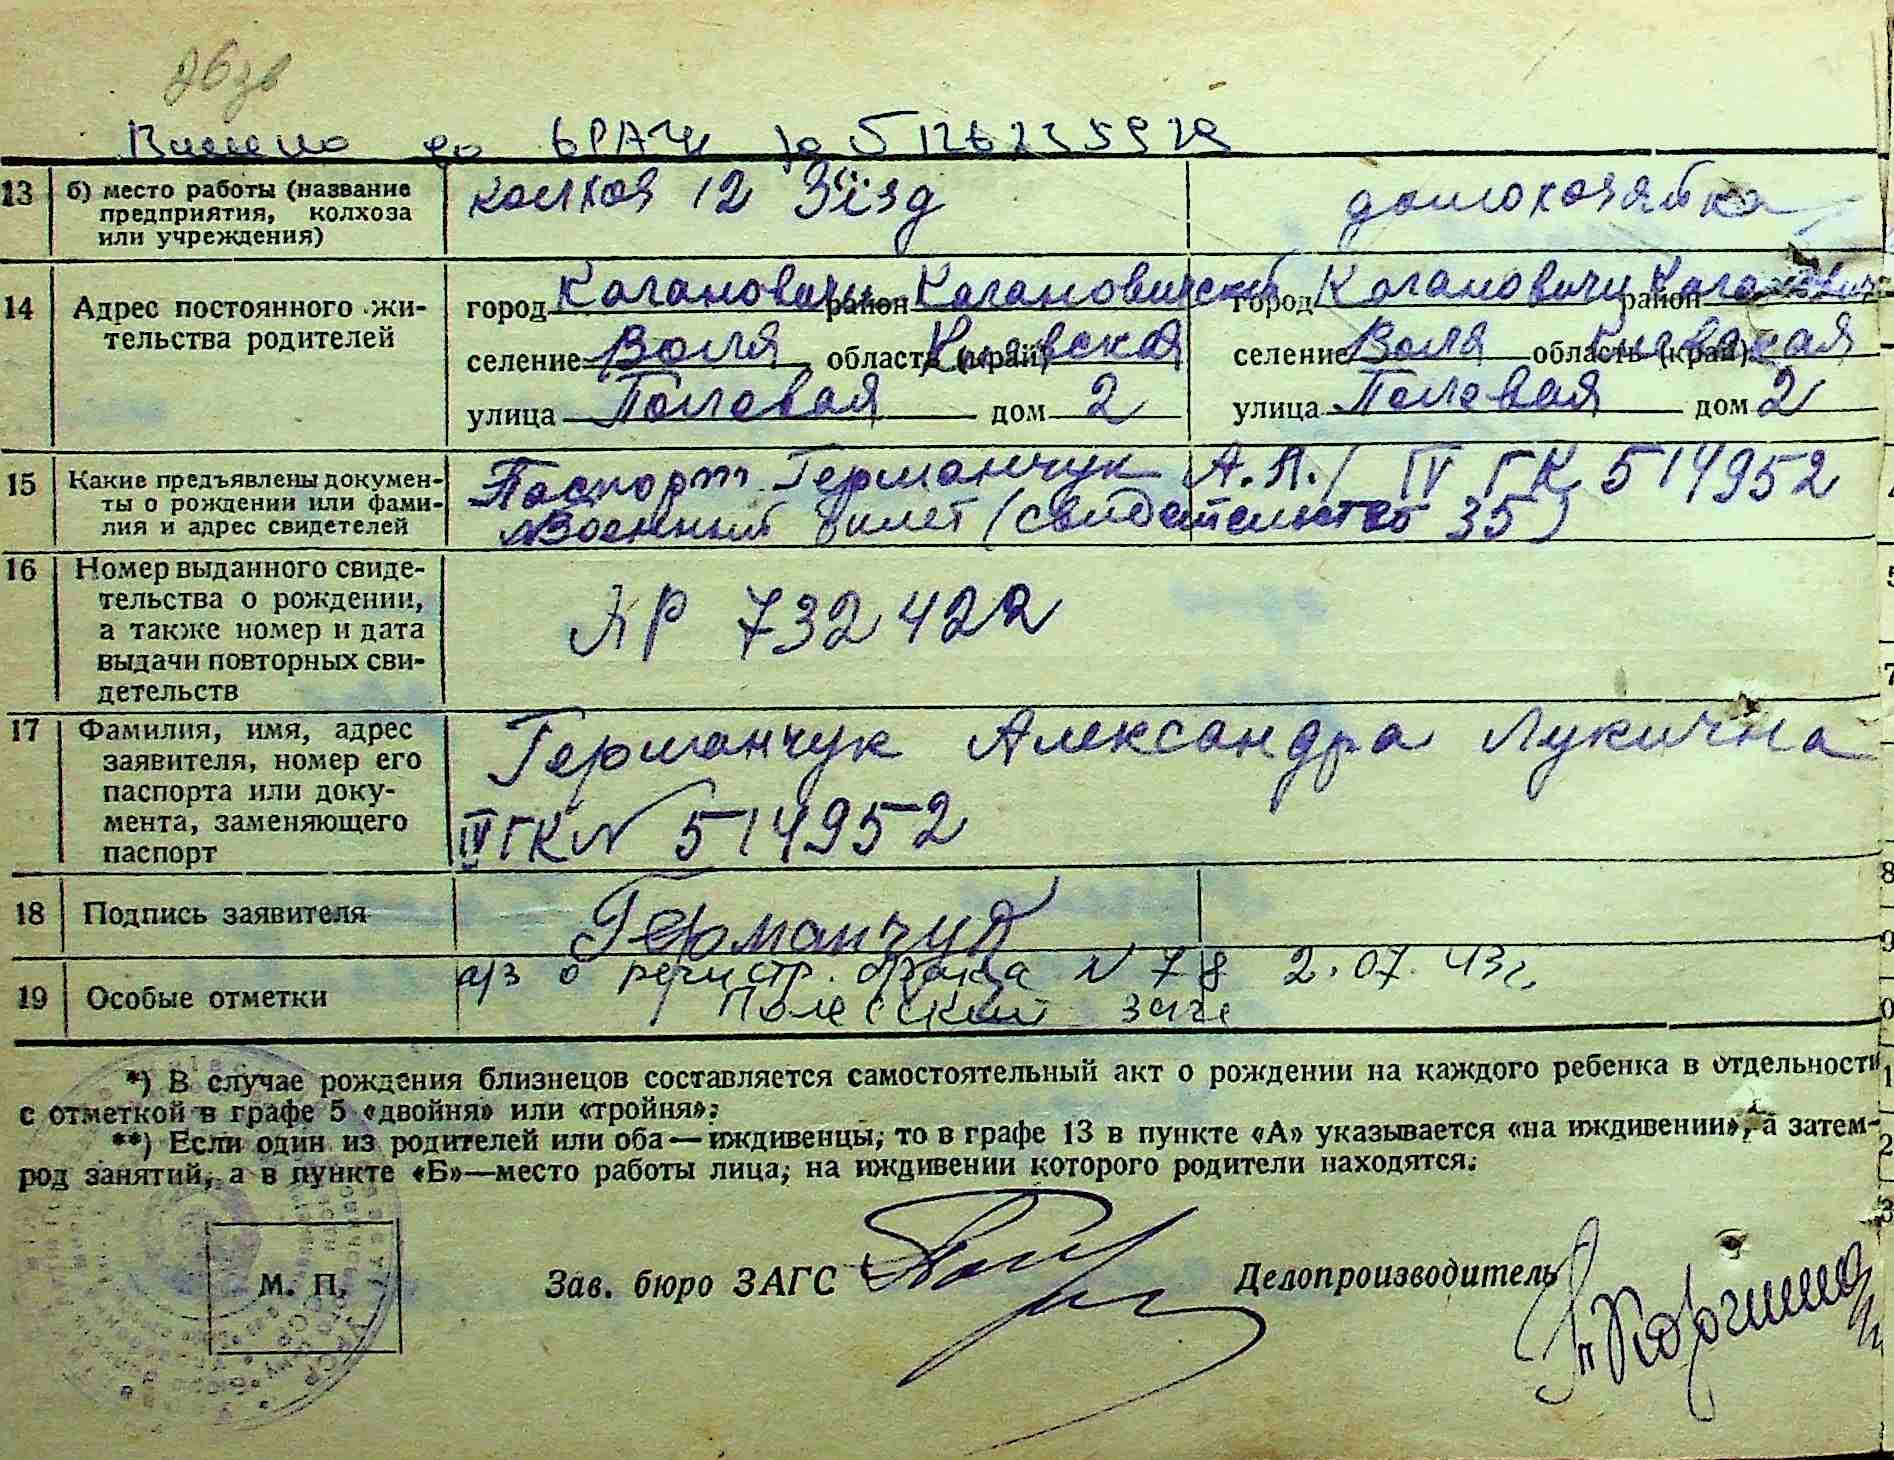 Внесено до ДРАЦС за № 126235929
13 б) место работы (название предприятия, колхоза или учреждения) колхоз 12 Зїізд домохозяйка
14 Адрес постоянного жительства родителей
город Кагановичи район Кагановичский город Кагановичи район
селение Воля область (край) Киевская селение Воля область (край) Киевская
улица Полевая дом 2 улица Полевая дом 2
15 Какие предъявлены документы о рождении или фамилия и адрес свидетелей
Паспорт Германчук А.Л./ IV ГК 514952
Военный билет (свидетельство 35)
16 Номер выданного свидетельства о рождении, а также номер и дата выдачи повторных свидетельств
732422
17 Фамилия, имя, адрес заявителя, номер его паспорта или документа, заменяющего паспорт
Германчук Александра Лукична
IV ГК N 514952
18 Подпись заявителя Германчук
19 Особые отметки
а/з о регистр. брака N 78 2.07.43г.
Полесский загс
*) В случае рождения близнецов составляется самостоятельный акт о рождении на каждого ребенка в отдельности
с отметкой в графе 5 «двойня» или «тройня».
**) Если один из родителей или оба—иждивенцы, то в графе 13 в пункте «А» указывается «на иждивении», а затем—
род занятий, а в пункте «Б»—место работы лица, на иждивении которого родители находятся.
М. П.
Зав. бюро ЗАГС Делопроизводитель